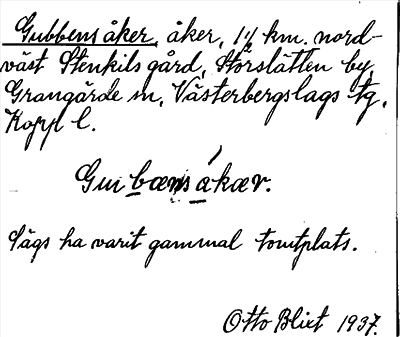 Gubbens åker, åker, 1½ km. nord-
väst Stenkils gård, Storslätten by,
Grangärde sn, Västerbergslags tg,
Kopp l.
Gu bæns åkær.
Sägs ha varit gammal tomtplats.
Otto Blixt 1937.